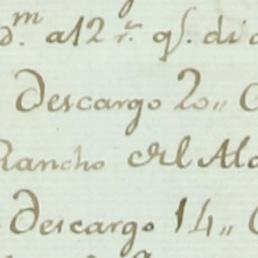 d.m a 12 r.s qs. di
Descargo 20,,
Rancho del Al
Descargo 14,,